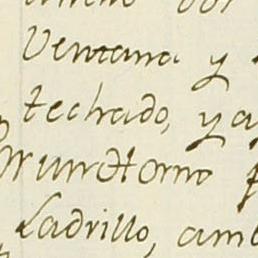 Ventana y
techado, y a
un Horno
Ladrillo, am